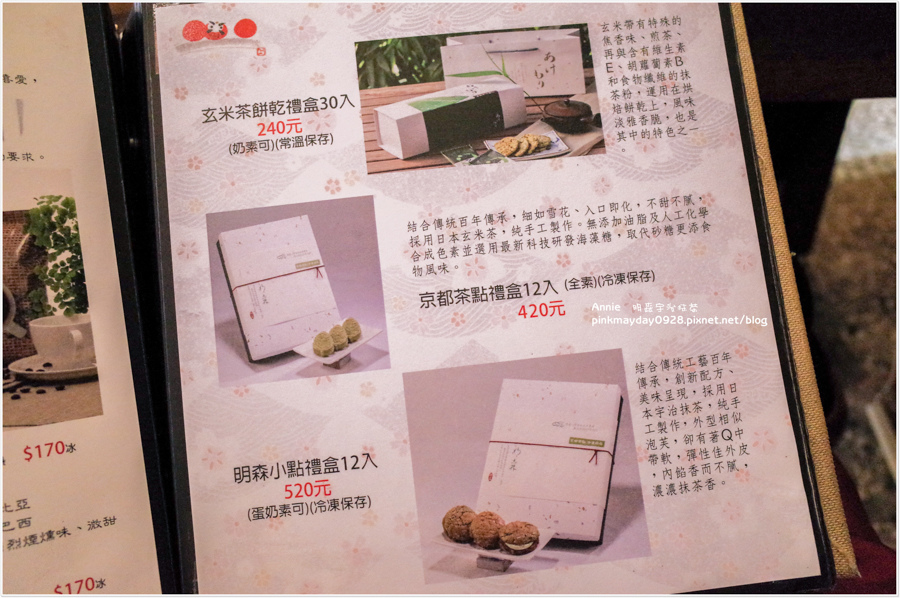 喜愛，
要求。
$170冰
比亞
巴西
烈煙燻味、微甜
$170冰
玄米茶餅乾禮盒30入
240元
(奶素可)(常溫保存)
玄米帶有特殊的
焦香味、煎茶、
再與含有維生素
E、胡蘿蔔素B
和食物纖維的抹
茶粉，運用在烘
焙餅乾上，風味
淡雅香脆，也是
其中的特色之一
。
結合傳統百年傳承，細如雪花、入口即化，不甜不膩，
採用日本玄米茶，純手工製作。無添加油脂及人工化學
合成色素並選用最新科技研發海藻糖，取代砂糖更添食
物風味。
京都茶點禮盒12入 (全素)(冷凍保存)
420元
Annie
pinkmayday0928.pixnet.net/blog
明森小點禮盒12入
520元
(蛋奶素可)(冷凍保存)
結合傳統工藝百年
傳承，創新配方、
美味呈現，採用日
本宇治抹茶，純手
工製作，外型相似
泡芙，卻有著Q中
帶軟，彈性佳外皮
，內餡香而不膩，
濃濃抹茶香。